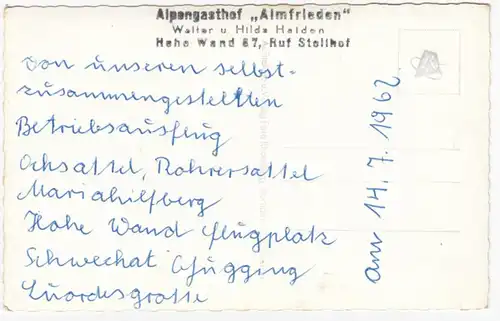 Alpengasthof „Almfrieden"
Walter u Hilde Haiden
Hohe Wand 67, Ruf Stollhof
von unseren selbst-
zusammengestellten
Betriebsausflug
Ochsattel, Rohrersattel
Mariahilfberg
Hohe Wand Flugplatz
Schwechat Gugging
Luordesgrotte
am 14. 7. 1962